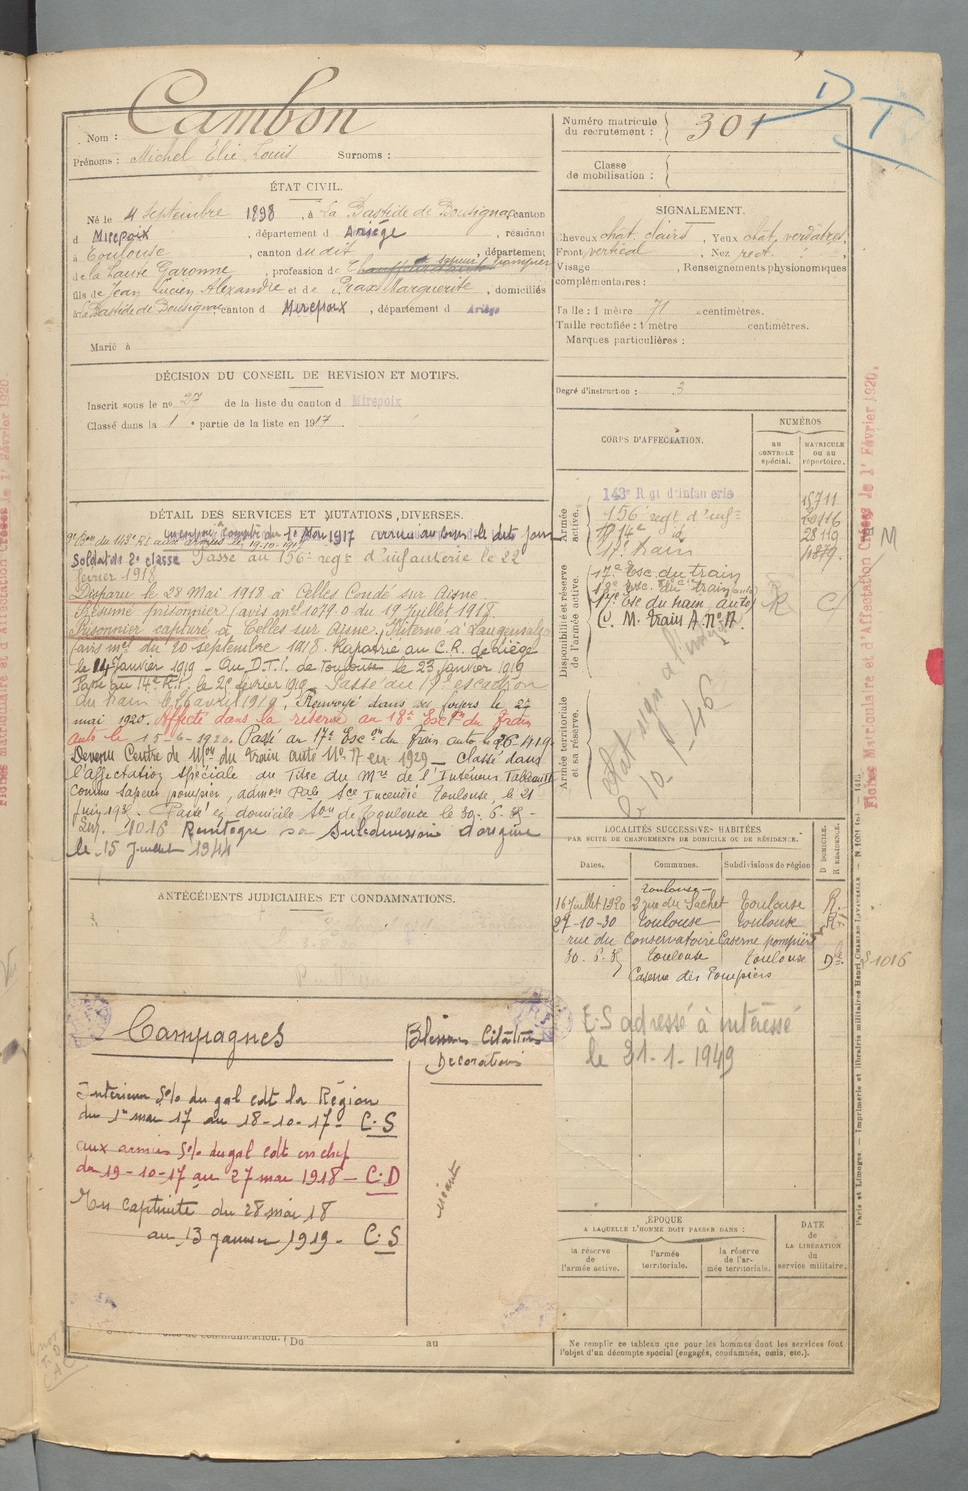 Nom : Cambon
Prénoms : Michel Elie Louis Surnoms :
ÉTAT CIVIL.
Né le 4 Septembre 1898, à La Bastide de Bousignac, canton
d Mirepoix, département d Ariège, résidant
à Toulouse, canton du dit, département
de la Haute Garonne, profession de Chauffeur sapeur pompier
fils de Jean Lucien Alexandre et de Marguerite, domiciliés
à La Bastide de Bousignac, canton d Mirepoix, département d Ariège
Marié à
DÉCISION DU CONSEIL DE REVISION ET MOTIFS.
Inscrit sous le no 27 de la liste du canton d Mirepoix
Classé dans la 1e partie de la liste en 1917.
DÉTAIL DES SERVICES ET MUTATIONS DIVERSES.
Incorporé à compter du 1er Mai 1917
Soldat de 2e classe Passé au 156e regt d'infanterie le 22
février 1918
Disparu le 28 Mai 1918 à Celles Condé sur Aisne.
Présumé prisonnier (avis ml 1079.0 du 19 Juillet 1918.
Prisonnier capturé à Celles sur Aisne. Interné à Langensalza
(avis ml du 20 septembre 1918. Rapatrié au C.R. de Liège
le 14 Janvier 1919 - Au D.T.I. de Toulouse le 23 Janvier 1919
Passé au 14e R.I. le 25 février 1919. Passé au 17e escadron
du train le 16 avril 1919, Renvoyé dans ses foyers le 27
mai 1920. Affecté dans la réserve au 18e Escon du Train
auto le 15-6-1920. Passé au 17e Escon du Train auto le
Devenu Centre de Mon du train auto No 17 en 1929 - Classé dans
l'affectation spéciale au Titre du Mre de l'Intérieur Tableau
comme sapeur pompier, admon Pale Sce Incendie Toulouse, le 21
Passé en domicile Son de Toulouse le 30.6.35 -
Sur. 1016 Réintègre sa Subdivision d'origine
le 15 Juillet 1944
ANTÉCÉDENTS JUDICIAIRES ET CONDAMNATIONS.
Campagnes
Intérieur S% du gal cdt la Région
du 1er mai 17 au 18-10-17 - C.S
aux armées S% du gal cdt en chef
du 19-10-17 au 27 mai 1918 - C.D
En captivité du 28 mai 18
au 13 Janvier 1919 - C.S
Blessures Citations
Décorations
néant
Du au
Numéro matricule
du recrutement : 301
Classe
de mobilisation :
D
T
SIGNALEMENT.
Cheveux chât. clairs, Yeux chât. verdâtres,
Front vertical, Nez rect.
Visage , Renseignements physionomiques
complémentaires :
Taille : 1 mètre 71 centimètres.
Taille rectifiée : 1 mètre centimètres.
Marques particulières :
Degré d'instruction : 3
CORPS D'AFFECTATION.
NUMÉROS
AU CONTRÔLE spécial.
MATRICULE OU AU répertoire.
Armée active.
143e Rgt d'infanterie 15711
156e regt d'infie
14e id 28119
17e train
Disponibilité et réserve de l'armée active.
17e Esc. du train
18e Esc. du train (auto)
17e Esc du train auto
C. M. train A. No 17.
Armée territoriale et sa réserve.
LOCALITÉS SUCCESSIVES HABITÉES
PAR SUITE DE CHANGEMENTS DE DOMICILE OU DE RÉSIDENCE.
Dates. Communes. Subdivisions de région D DOMICILE. R RÉSIDENCE.
Toulouse -
16 Juillet 1920 2 rue du Sachet Toulouse R.
27-10-30 Toulouse Toulouse R
rue du Conservatoire Caserne pompiers
30.6.35 Toulouse Toulouse D
Caserne des Pompiers
S 1016
E.S adressé à intéressé
le 31-1-1949
ÉPOQUE
A LAQUELLE L'HOMME DOIT PASSER DANS :
la réserve de l'armée active.
l'armée territoriale.
la réserve de l'armée territoriale.
DATE
de
LA LIBÉRATION
du
service militaire.
Ne remplir ce tableau que pour les hommes dont les services font
l'objet d'un décompte spécial (engagés, condamnés, omis, etc.).
Paris et Limoges. — Imprimerie et librairie militaires Henri CHARLES-LAVAUZELLE.
Fiches Matriculaire et d'Affectation Créées le 1er Février 1920.